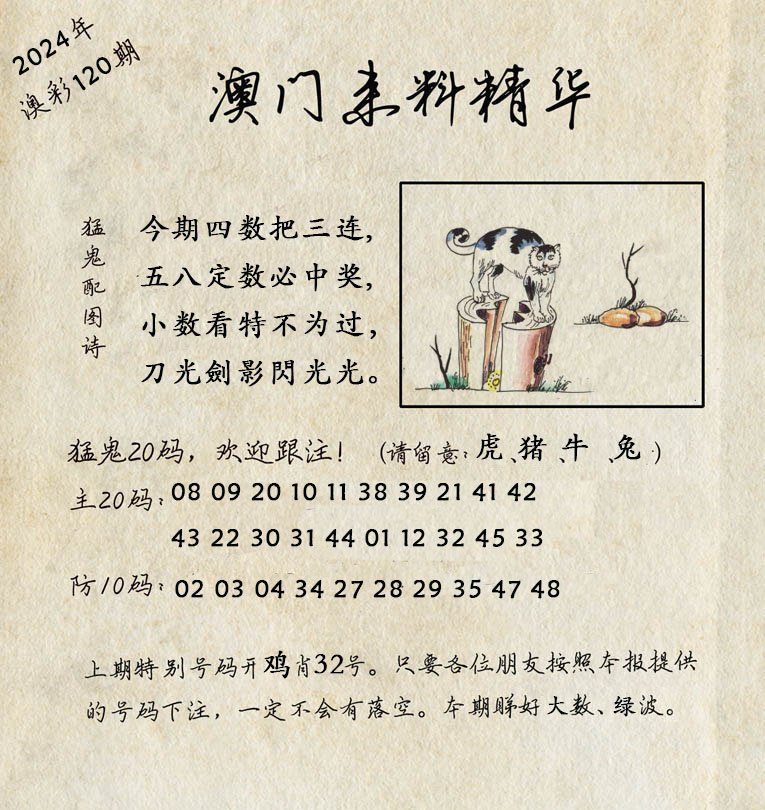 2024年
澳彩120期
澳门来料精华
猛鬼配图诗
今期四数把三连,
五八定数必中奖,
小数看特不为过,
刀光劍影閃光光。
猛鬼20码，欢迎跟注！（请留意：虎、猪、牛、兔）
主20码：08 09 20 10 11 38 39 21 41 42
43 22 30 31 44 01 12 32 45 33
防10码：02 03 04 34 27 28 29 35 47 48
上期特别号码开鸡肖32号。只要各位朋友按照本报提供
的号码下注，一定不会有落空。本期睇好大数、绿波。